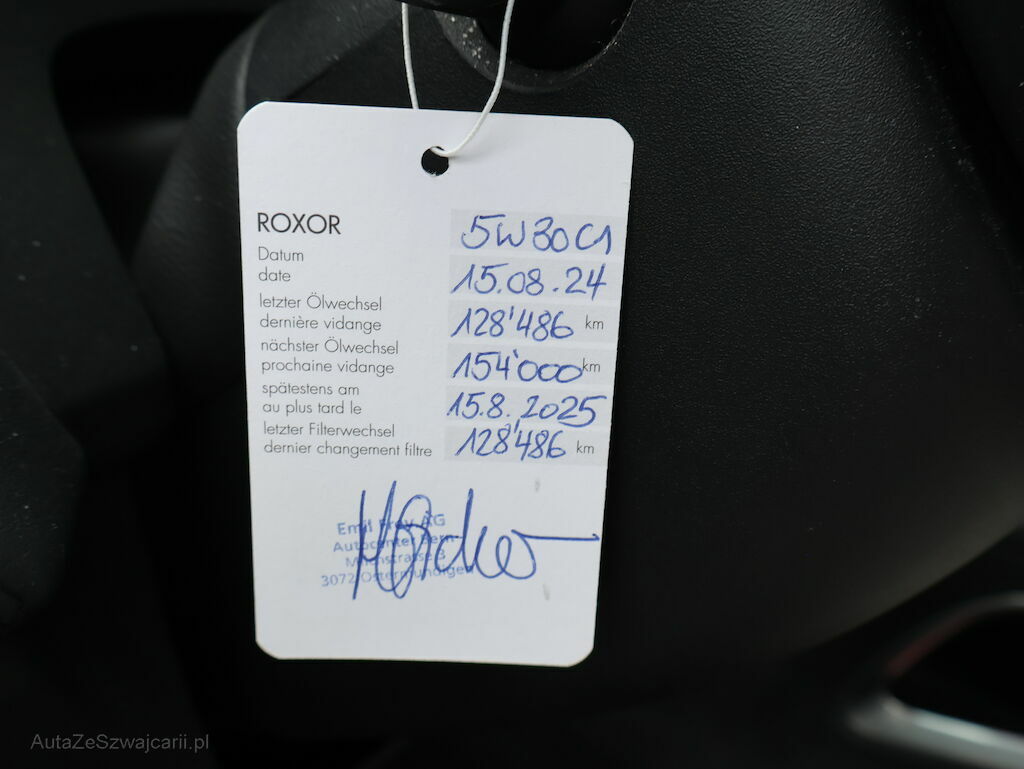 ROXOR 5W30C1
Datum
date 15.08.24
letzter Ölwechsel
dernière vidange 128'486 km
nächster Ölwechsel
prochaine vidange 154'000 km
spätestens am
au plus tard le 15.8.2025
letzter Filterwechsel
dernier changement filtre 128'486 km
Emil Frey AG
Autocenter Bern
3072 Ostermundigen
AutaZeSzwajcarii.pl